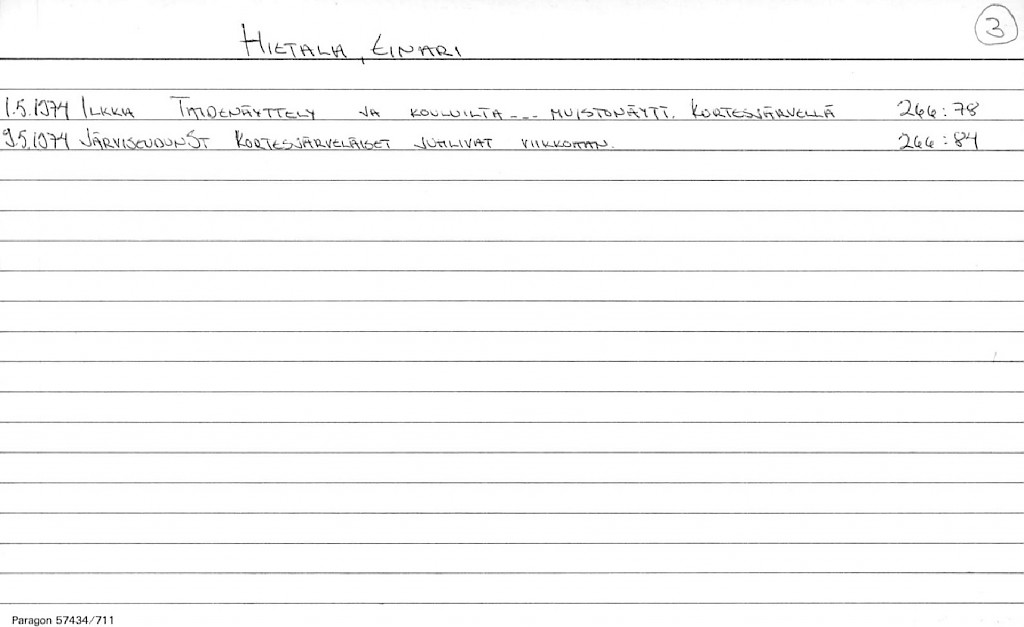 3
HIETALA, EINARI
1.5.1974 ILKKA TAIDENÄYTTELY JA KOULUILTA --- MUISTONÄYTT. KORTESJÄRVELLÄ 266:78
9.5.1974 JÄRVISEUDUN ST KORTESJÄRVELÄISET JUHLIVAT VIIKKONAN. 266:84
Paragon 57434/711